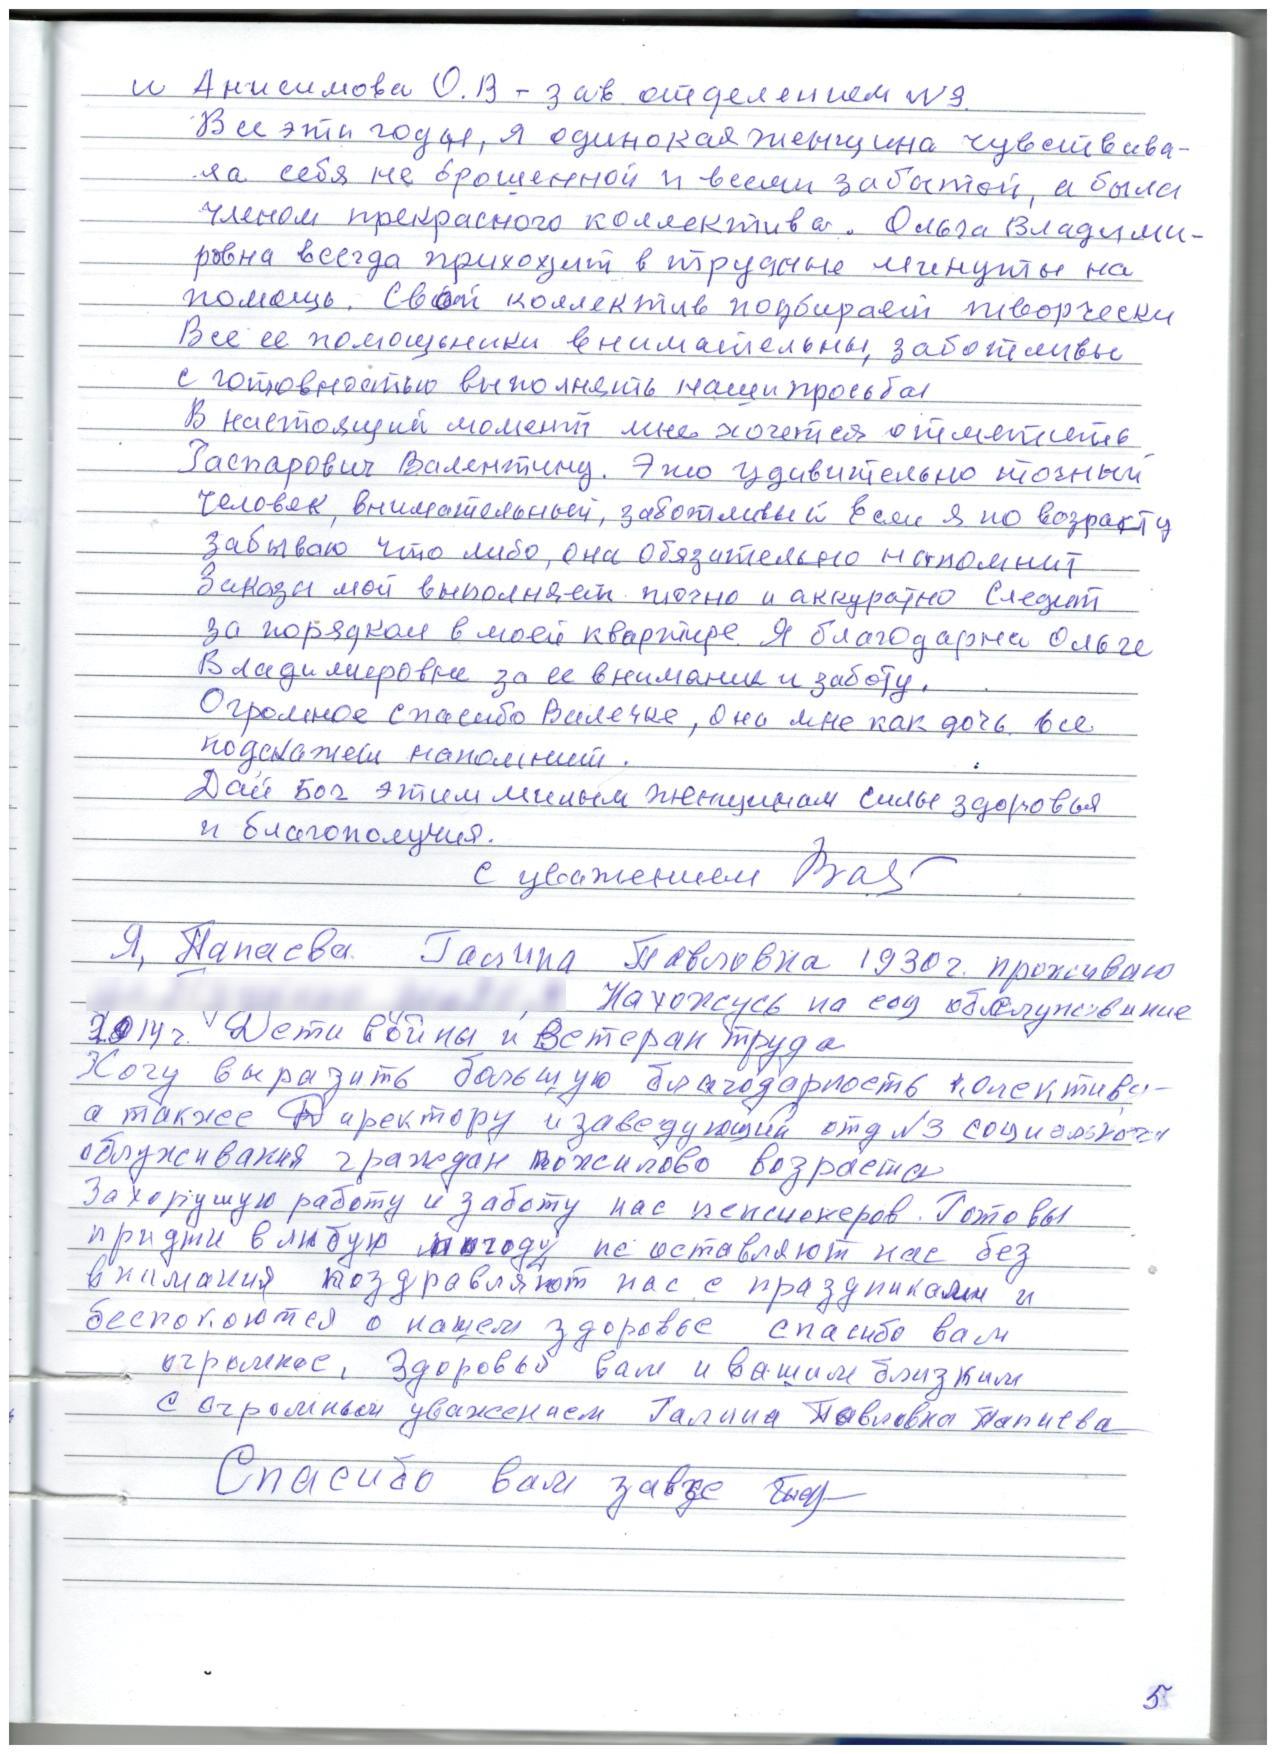 и Анисимова О.В - зав отделением №3.
Все эти годы, я одинокая женщина чувствова-
ла себя не брошенной и всеми забытой, а была
членом прекрасного коллектива. Ольга Владими-
ровна всегда приходит в трудные минуты на
помощь. Свой коллектив подбирает творчески
Все ее помощники внимательны, заботливы
с готовностью выполнять наши просьбы
В настоящий момент мне хочется отметить
Гаспарович Валентину. Это удивительно точный
человек, внимательный, заботливый Если я по возрасту
забываю что либо, она обязательно напомнит
Заказы мои выполняет точно и аккуратно Следит
за порядком в моей квартире. Я благодарна Ольге
Владимировне за ее внимание и заботу.
Огромное спасибо Валечке, она мне как дочь все
подскажет напомнит.
Дай Бог этим милым женщинам силы здоровья
и благополучия.
С уважением
Я, Папаева Галина Павловна 1930г. проживаю
Нахожусь на соц обслуживание
2014г. Дети войны и Ветеран труда
Хочу выразить большую благодарность колективу
а также Директору и заведующий отд №3 социального
облуживания граждан пожилово возраста
За хорошую работу и заботу нас пенсионеров. Готовы
придти в любую погоду не оставляют нас без
внимания поздравляют нас с праздниками и
беспокоются о нашем здоровье спасибо вам
огромное, Здоровья вам и вашим близким
с огромным уважением Галина Павловна Папаева
Спасибо вам за все
5